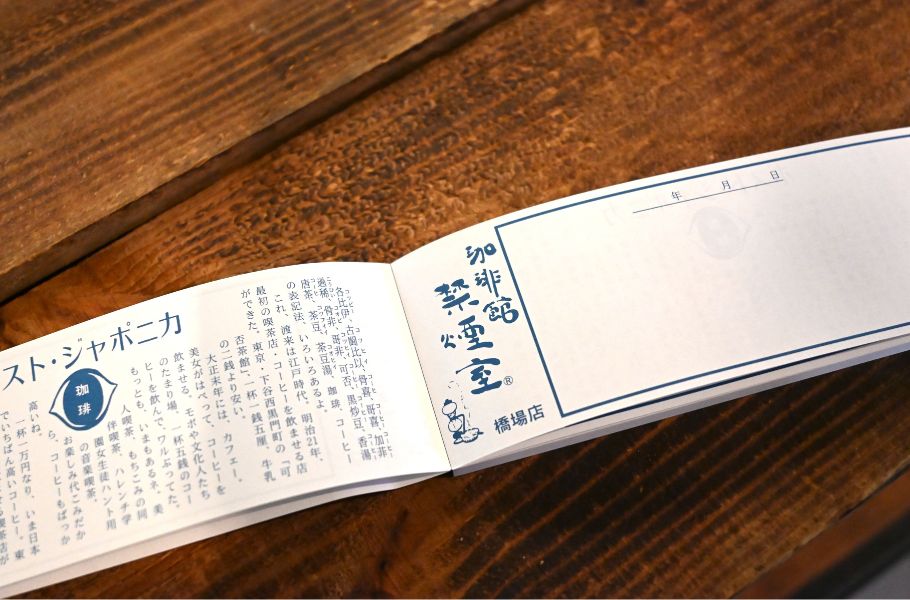 スト・ジャポニカ
珈琲
各比伊、古闘比以、骨喜、哥喜、加非
過稀、骨非、哥非、可否、黒炒豆、香湯
唐茶、茶豆、茶豆湯、珈琲、コーヒー
の表記法、いろいろあるよ。
これ、渡来は江戸時代、明治21年、
最初の喫茶店・コーヒーを飲ませる店
ができた。東京・下谷西黒門町の『可
否茶館』、一杯一銭五厘、牛乳
の二銭より安い。
大正末年には、カフェー。
美女がはべって、コーヒーを
飲ませる。モボや文化人たち
のたまり場、一杯五銭のコー
ヒーを飲んで、ワルぶってた。
もっとも、いまもあるネ。美
人喫茶、もちこみの同
伴喫茶、ハレンチ学
園女生徒ハント用
の音楽喫茶、
お楽しみ代こみだか
ら、コーヒーもばっか
高いね。
一杯一万円なり、いま日本
でいちばん高いコーヒー。東
珈琲館
禁煙室®
橋場店
年 月 日